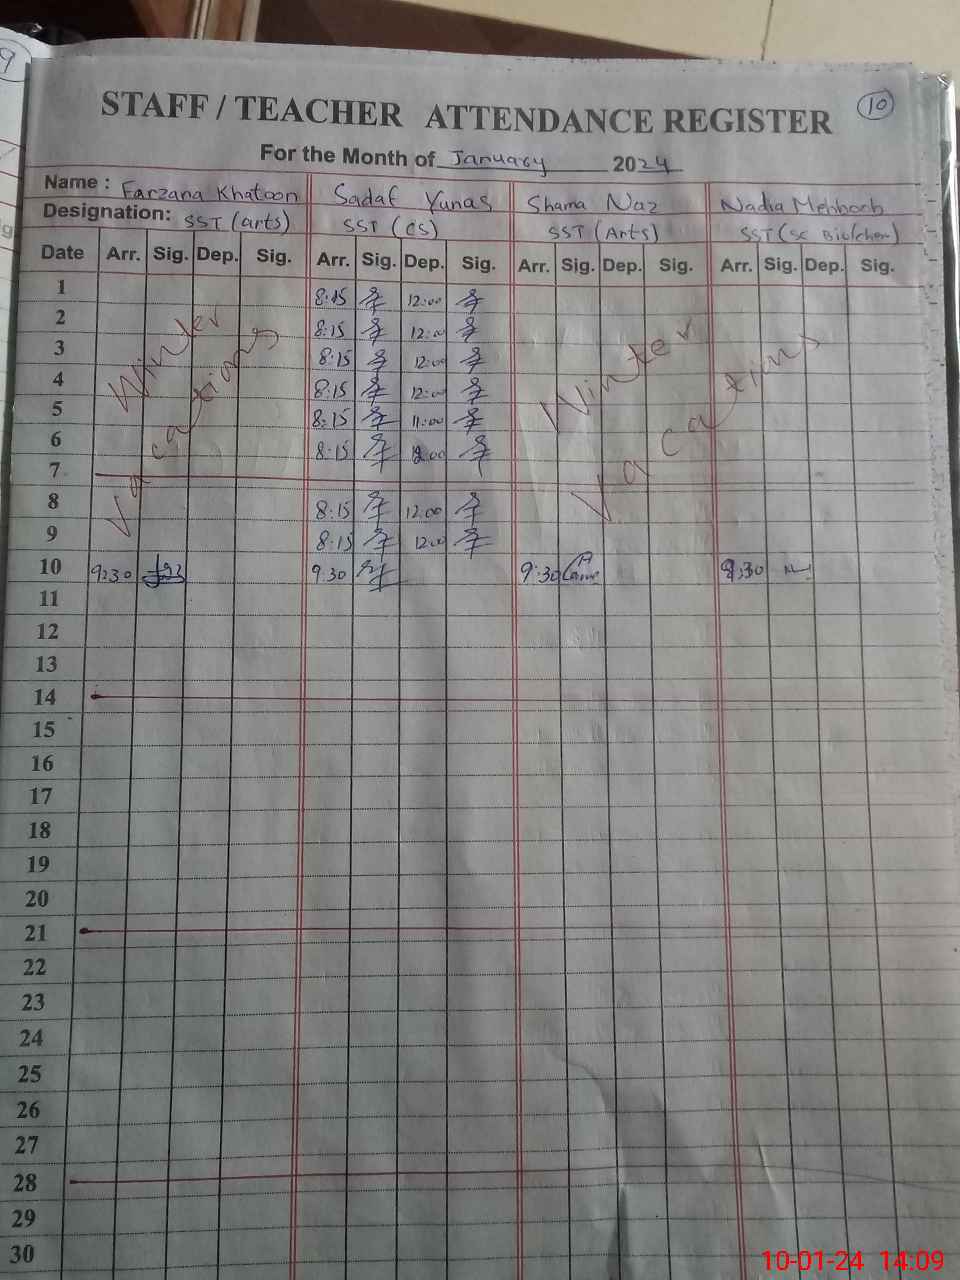 10
STAFF / TEACHER ATTENDANCE REGISTER
For the Month of January 2024
Name : Farzana Khatoon Sadaf Yunas Shama Naz Nadia
Designation: SST (arts) SST (CS) SST (Arts) SST (SC Bio/chem)
Date Arr. Sig. Dep. Sig. Arr. Sig. Dep. Sig. Arr. Sig. Dep. Sig. Arr. Sig. Dep. Sig.
1 8:15 12:00
2 8:15 12:00
3 8:15 12:00
4 8:15 12:00
5 8:15 11:00
6 8:15 12:00
7
8 8:15 12:00
9 8:15 12:00
Winter Vacations
Winter Vacations
10 9:30 9:30 9:30 9:30
11
12
13
14
15
16
17
18
19
20
21
22
23
24
25
26
27
28
29
30
10-01-24 14:09